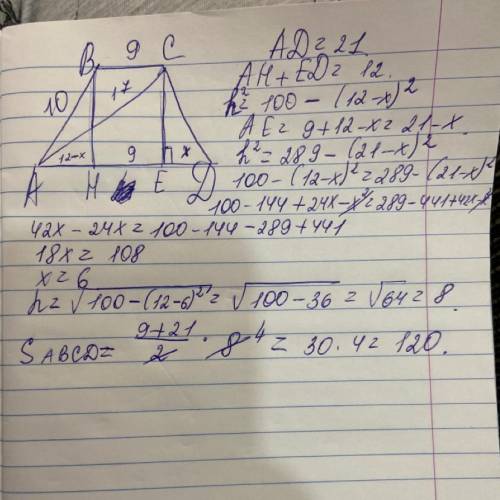 9
B C
10 17
12-x 9 x
A H E D
AD = 21
AH + ED = 12.
h² = 100 - (12-x)²
AE = 9+12-x = 21-x.
h² = 289 - (21-x)²
100 - (12-x)² = 289 - (21-x)²
100-144+24x-x² = 289-441+42x-x²
42x - 24x = 100-144-289+441
18x = 108
x = 6
h = √100-(12-6)² = √100-36 = √64 = 8.
S ABCD = 9+21/2 · 8 4 = 30 · 4 = 120.